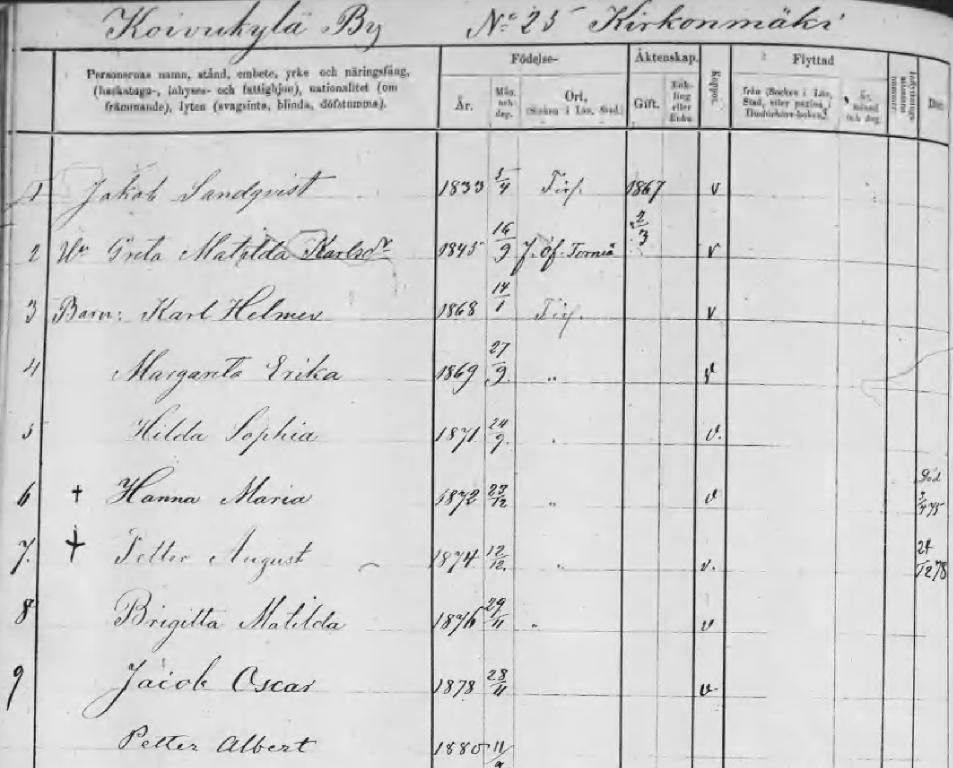 Koivukylä By N:o 25 Kirkonmäki
Personernas namn, stånd, embete, yrke och näringsfång, (backstugu-, inhyses- och fattighjon), nationalitet (om främmande), lyten (svagsinta, blinda, döfstumma).
Födelse-
År.
Mån. och dag.
Ort, (Socken i Län, Stad.)
Äktenskap.
Gift.
Enkling eller Enka
Koppor.
Flyttad
från (Socken i Län, Stad, eller pagina i
År, månad och dag.
1 Jakob Sandqvist 1833 5/4 1867 v
2/3
2 Hu Greta Matilda Karlsdr 1845 16/9 Öf. Torneå v
3 Barn: Karl Helmer 1868 14/1 v
4 Margareta Erika 1869 27/9 „ v
5 Hilda Sophia 1871 24/9 „ v.
6 † Hanna Maria 1872 23/12 „ v Död 75
7. † Petter August 1874 12/12 „ v. 24/12 78
8 Brigitta Matilda 1876 29/11 „ v
9 Jacob Oscar 1878 28/11 v
Petter Albert 1880 11/9